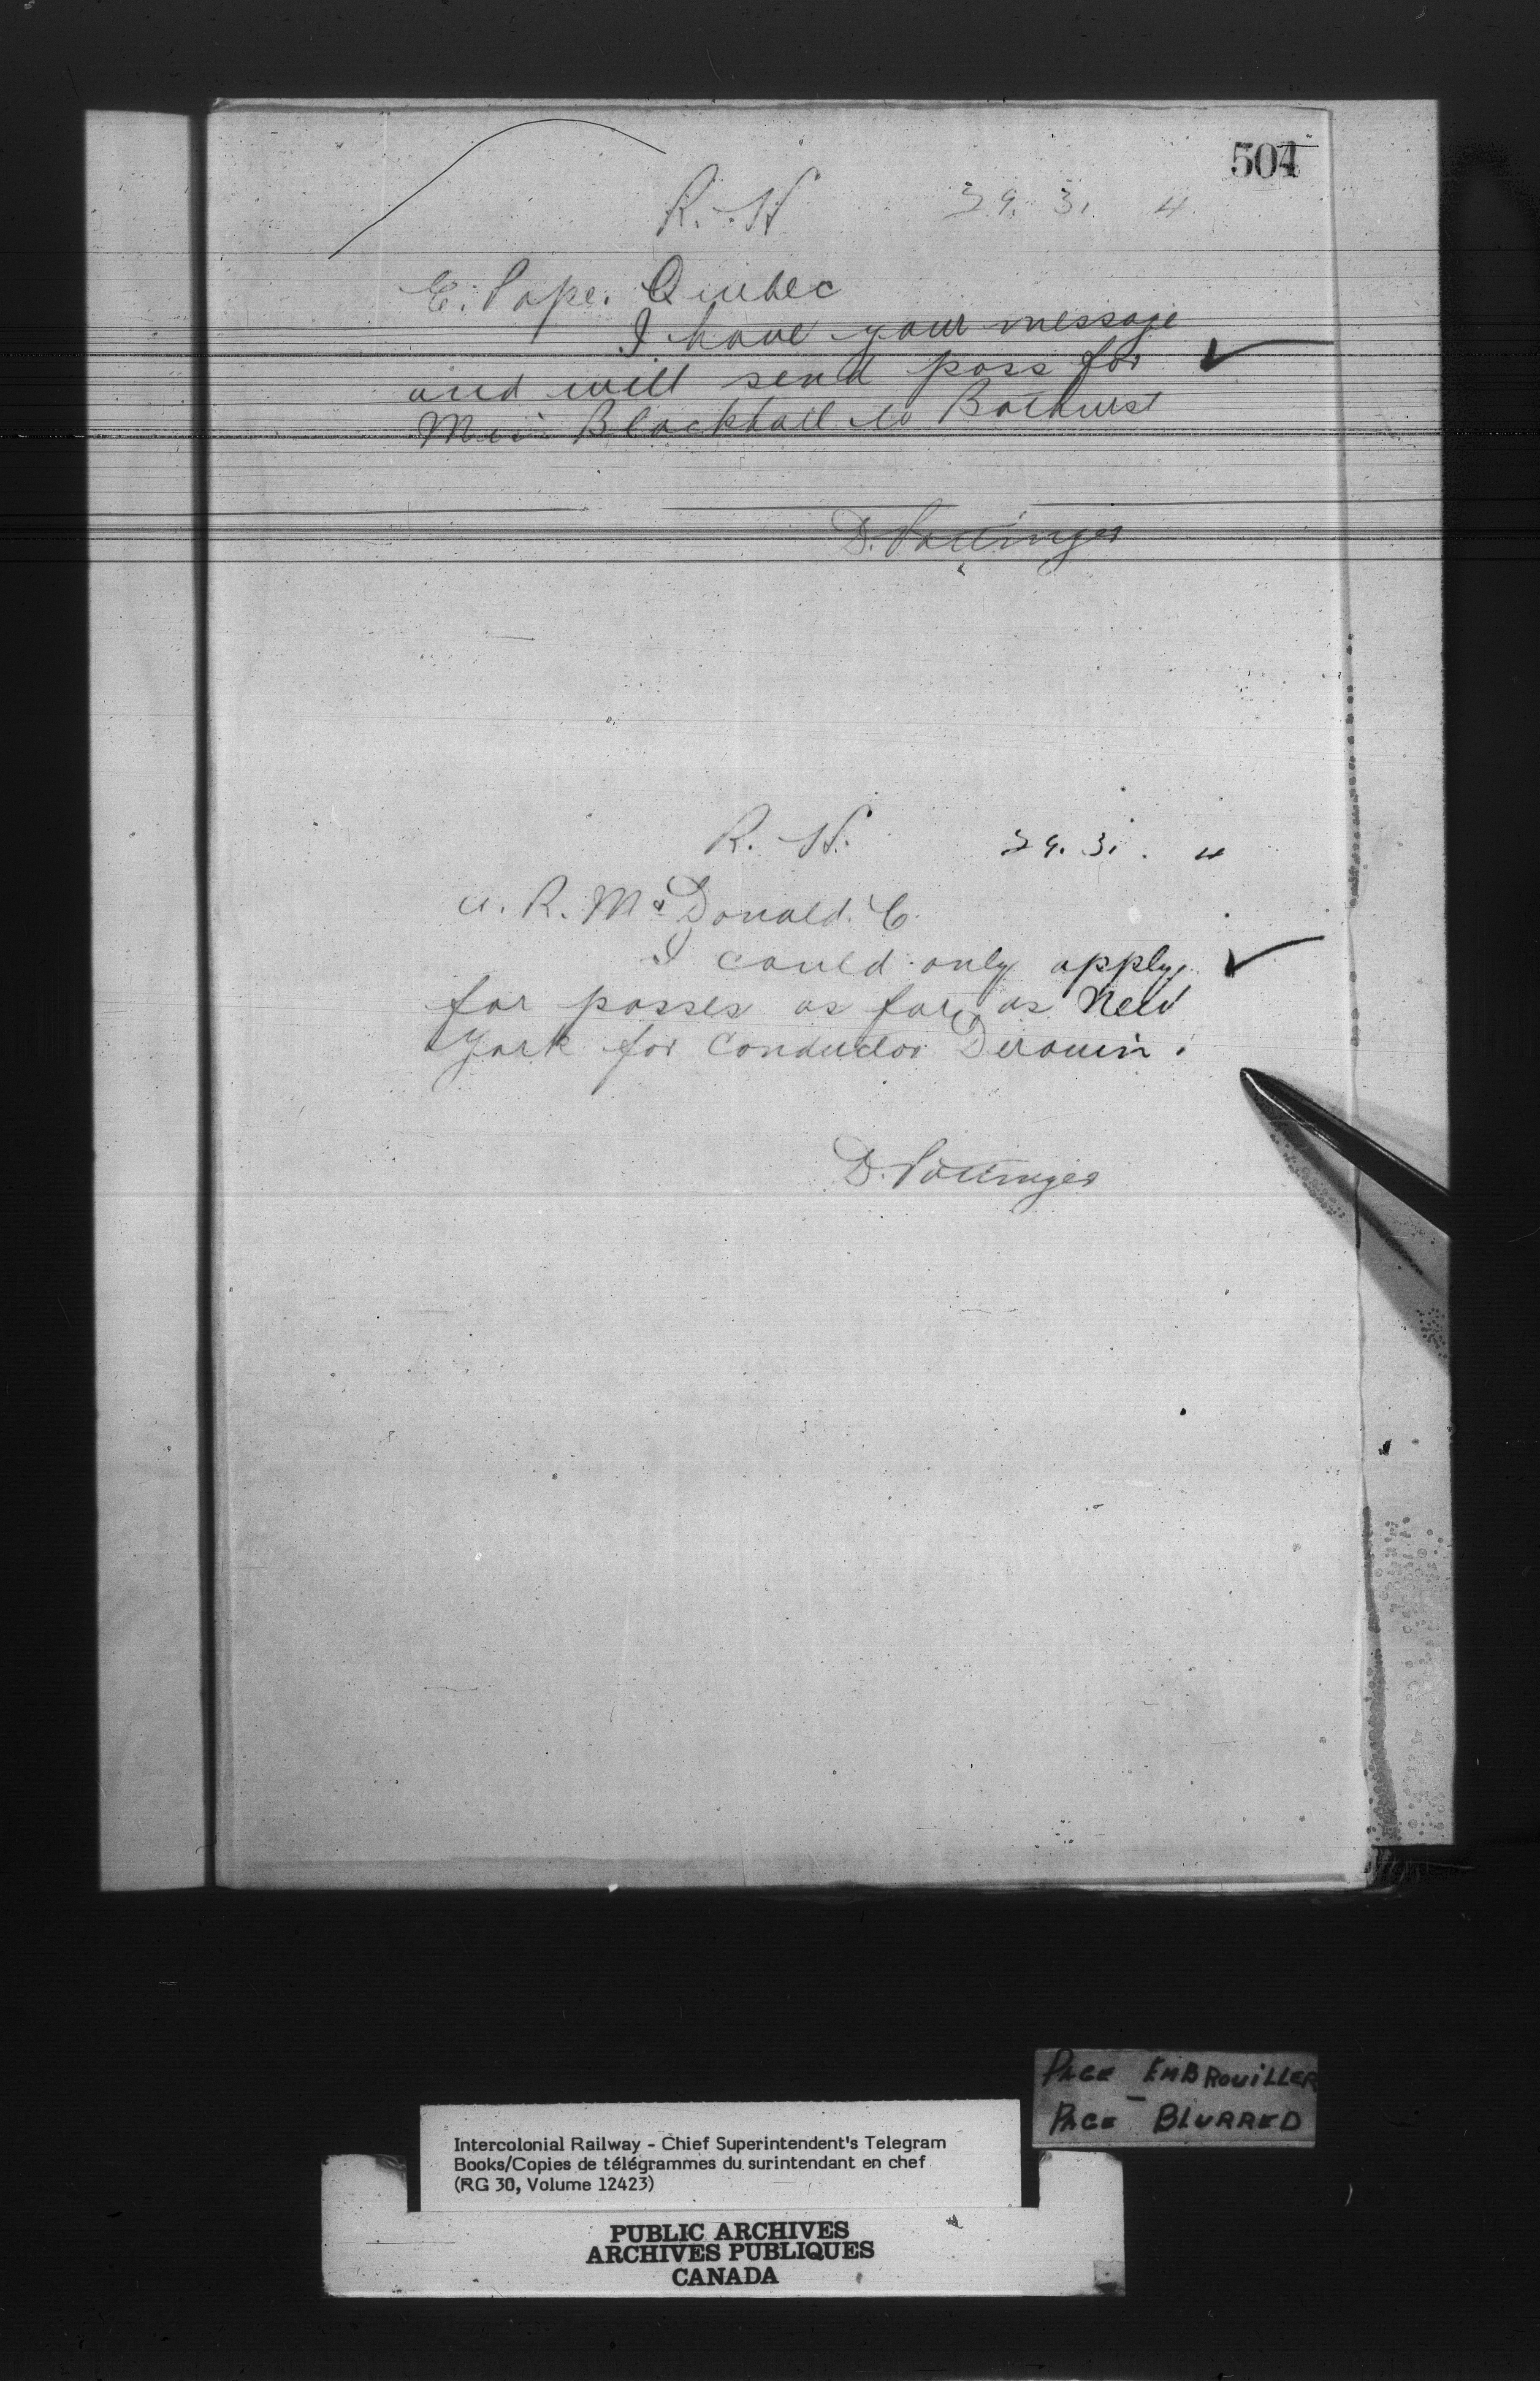 504
R. H 29. 3. 4
E. Pope. Quebec
I have your message
and will send pass for
Miss Blackhall to Bathurst
D. Pottinger
R. H. 29. 3. 4
A. R. McDonald. C.
I could only apply
for passes as far as New
York for Conductor Derouin.
D. Pottinger
PAGE EMBROUILLER
PAGE BLURRED
Intercolonial Railway - Chief Superintendent's Telegram
Books/Copies de télégrammes du surintendant en chef
(RG 30, Volume 12423)
PUBLIC ARCHIVES
ARCHIVES PUBLIQUES
CANADA